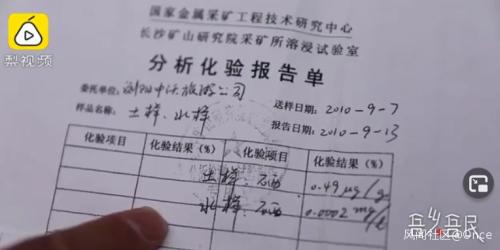 梨视频
国家金属采矿工程技术研究中心
长沙矿山研究院采矿所溶浸试验室
分析化验报告单
委托单位: 浏阳中沃旅游公司 送样日期: 2010-9-7
样品名称: 土样、水样 报告日期: 2010-9-13
化验项目 化验结果(%) 化验项目 化验结果(%)
土样: 硒 0.49 μg/g
水样: 硒 0.0002 mg/L
风闻社区@Once